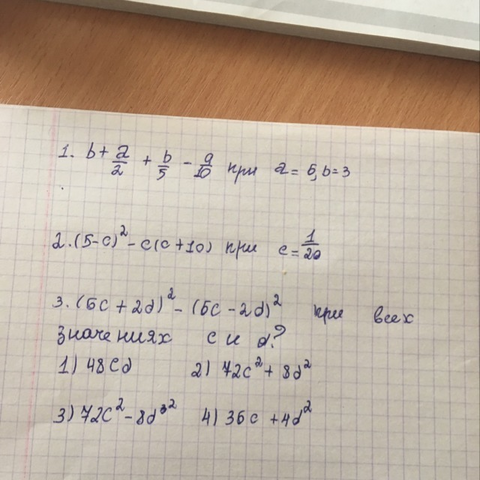 1. b + a/2 + b/5 - a/10 при a = 6, b = 3
2. (5-c)² - c(c+10) при c = 1/20
3. (6c + 2d)² - (6c - 2d)² при всех
значениях c и d?
1) 48cd 2) 72c² + 8d²
3) 72c² - 8d² 4) 36c + 4d²